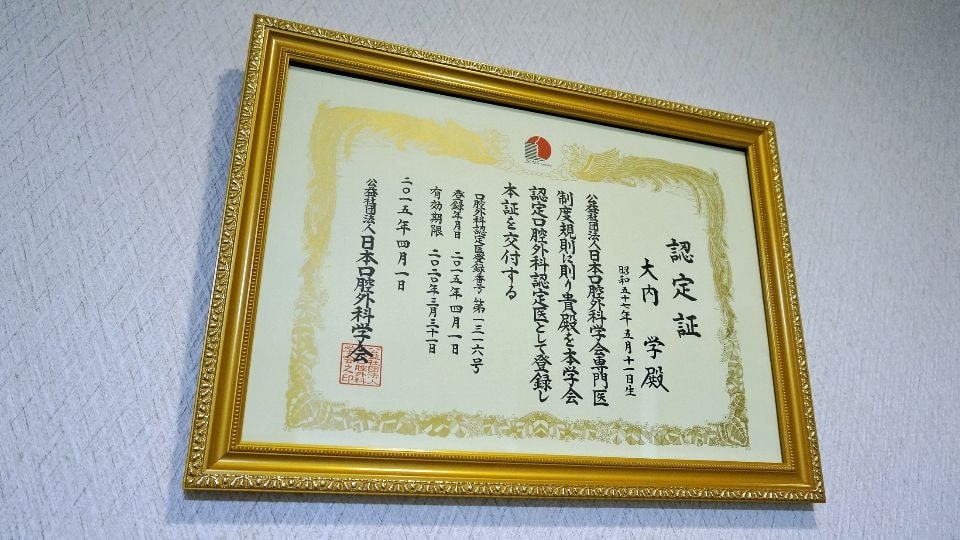 認定証
大内 学殿
昭和五十七年五月十一日生
公益社団法人日本口腔外科学会専門医
制度規則に則り貴殿を本学会
認定口腔外科認定医として登録し
本証を交付する
口腔外科認定医登録番号 第一三一六号
登録年月日 二〇一五年四月一日
有効期限 二〇二〇年三月三十一日
二〇一五年四月一日
公益社団法人日本口腔外科学会
公益社団法人
日本口腔外科
学会之印